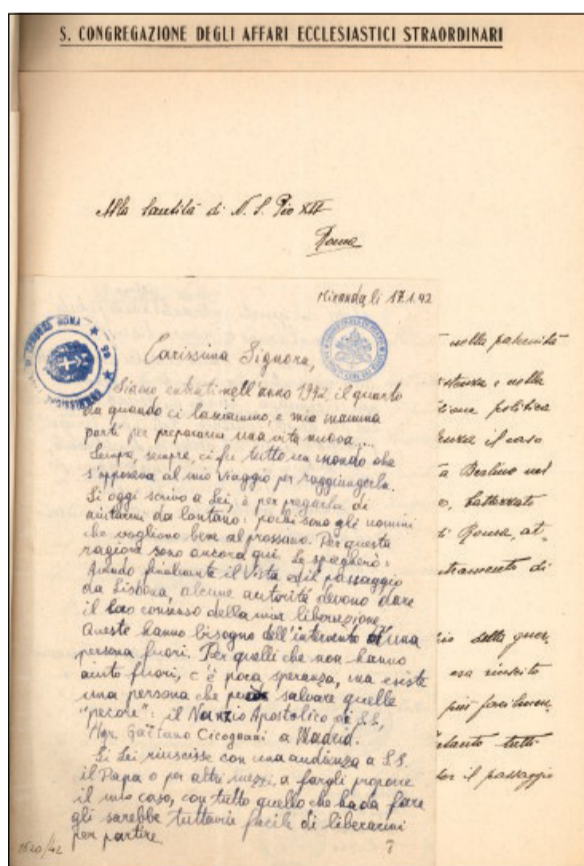 S. CONGREGAZIONE DEGLI AFFARI ECCLESIASTICI STRAORDINARI
Alla Santità di N. S. Pio XII
Roma
Miranda, li 17.1.42
Carissima Signora,
Siamo entrati nell'anno 1942, il quarto
da quando ci lasciammo, e mia mamma
partì per prepararmi una vita nuova....
Sempre, sempre, ci fu tutto un mondo che
s'opponeva al mio viaggio per raggiungerla.
Si oggi scrivo a Lei, è per pregarla di
aiutarmi da lontano: pochi sono gli uomini
che vogliono bene al prossimo. Per questa
ragione sono ancora qui. Le spiegherò:
Avendo finalmente il Vista ed il passaggio
da Lisbona, alcune autorità devono dare
il loro consenso della mia liberazione.
Queste hanno bisogno dell'intervento di una
persona fuori. Per quelli che non hanno
aiuto fuori, c'è poca speranza, ma esiste
una persona che può salvare quelle
"pecore": il Nunzio Apostolico di S.S,
Mgr. Gaëtano Cicognani a Madrid.
Si Lei riuscisse con una audienza a S.S.
il Papa o per altri mezzi, a fargli proporre
il mio caso, con tutto quello che ha da fare
gli sarebbe tuttavia facile di liberarmi
per partire.
nella paternità
e nella
politica
il caso
a Berlino nel
battezzato
di Roma, at-
di
delle guer-
era riuscito
più
tutti
per il passaggio
1520/42
7